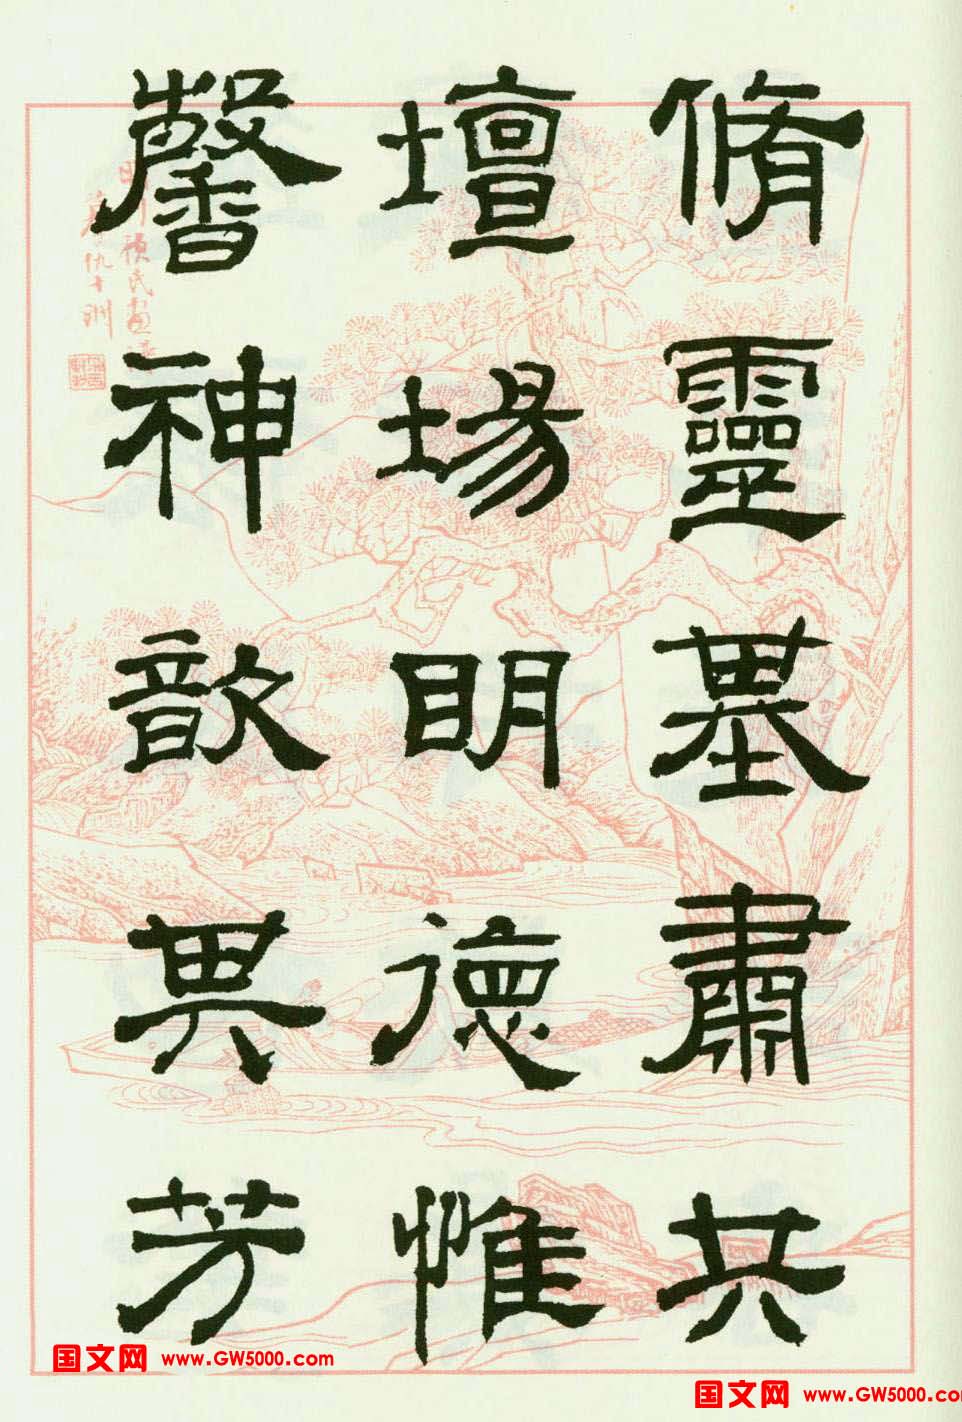 脩靈基肅共
壇場明德惟
馨神歆其芳
国文网 www.GW5000.com
国文网 www.GW5000.com